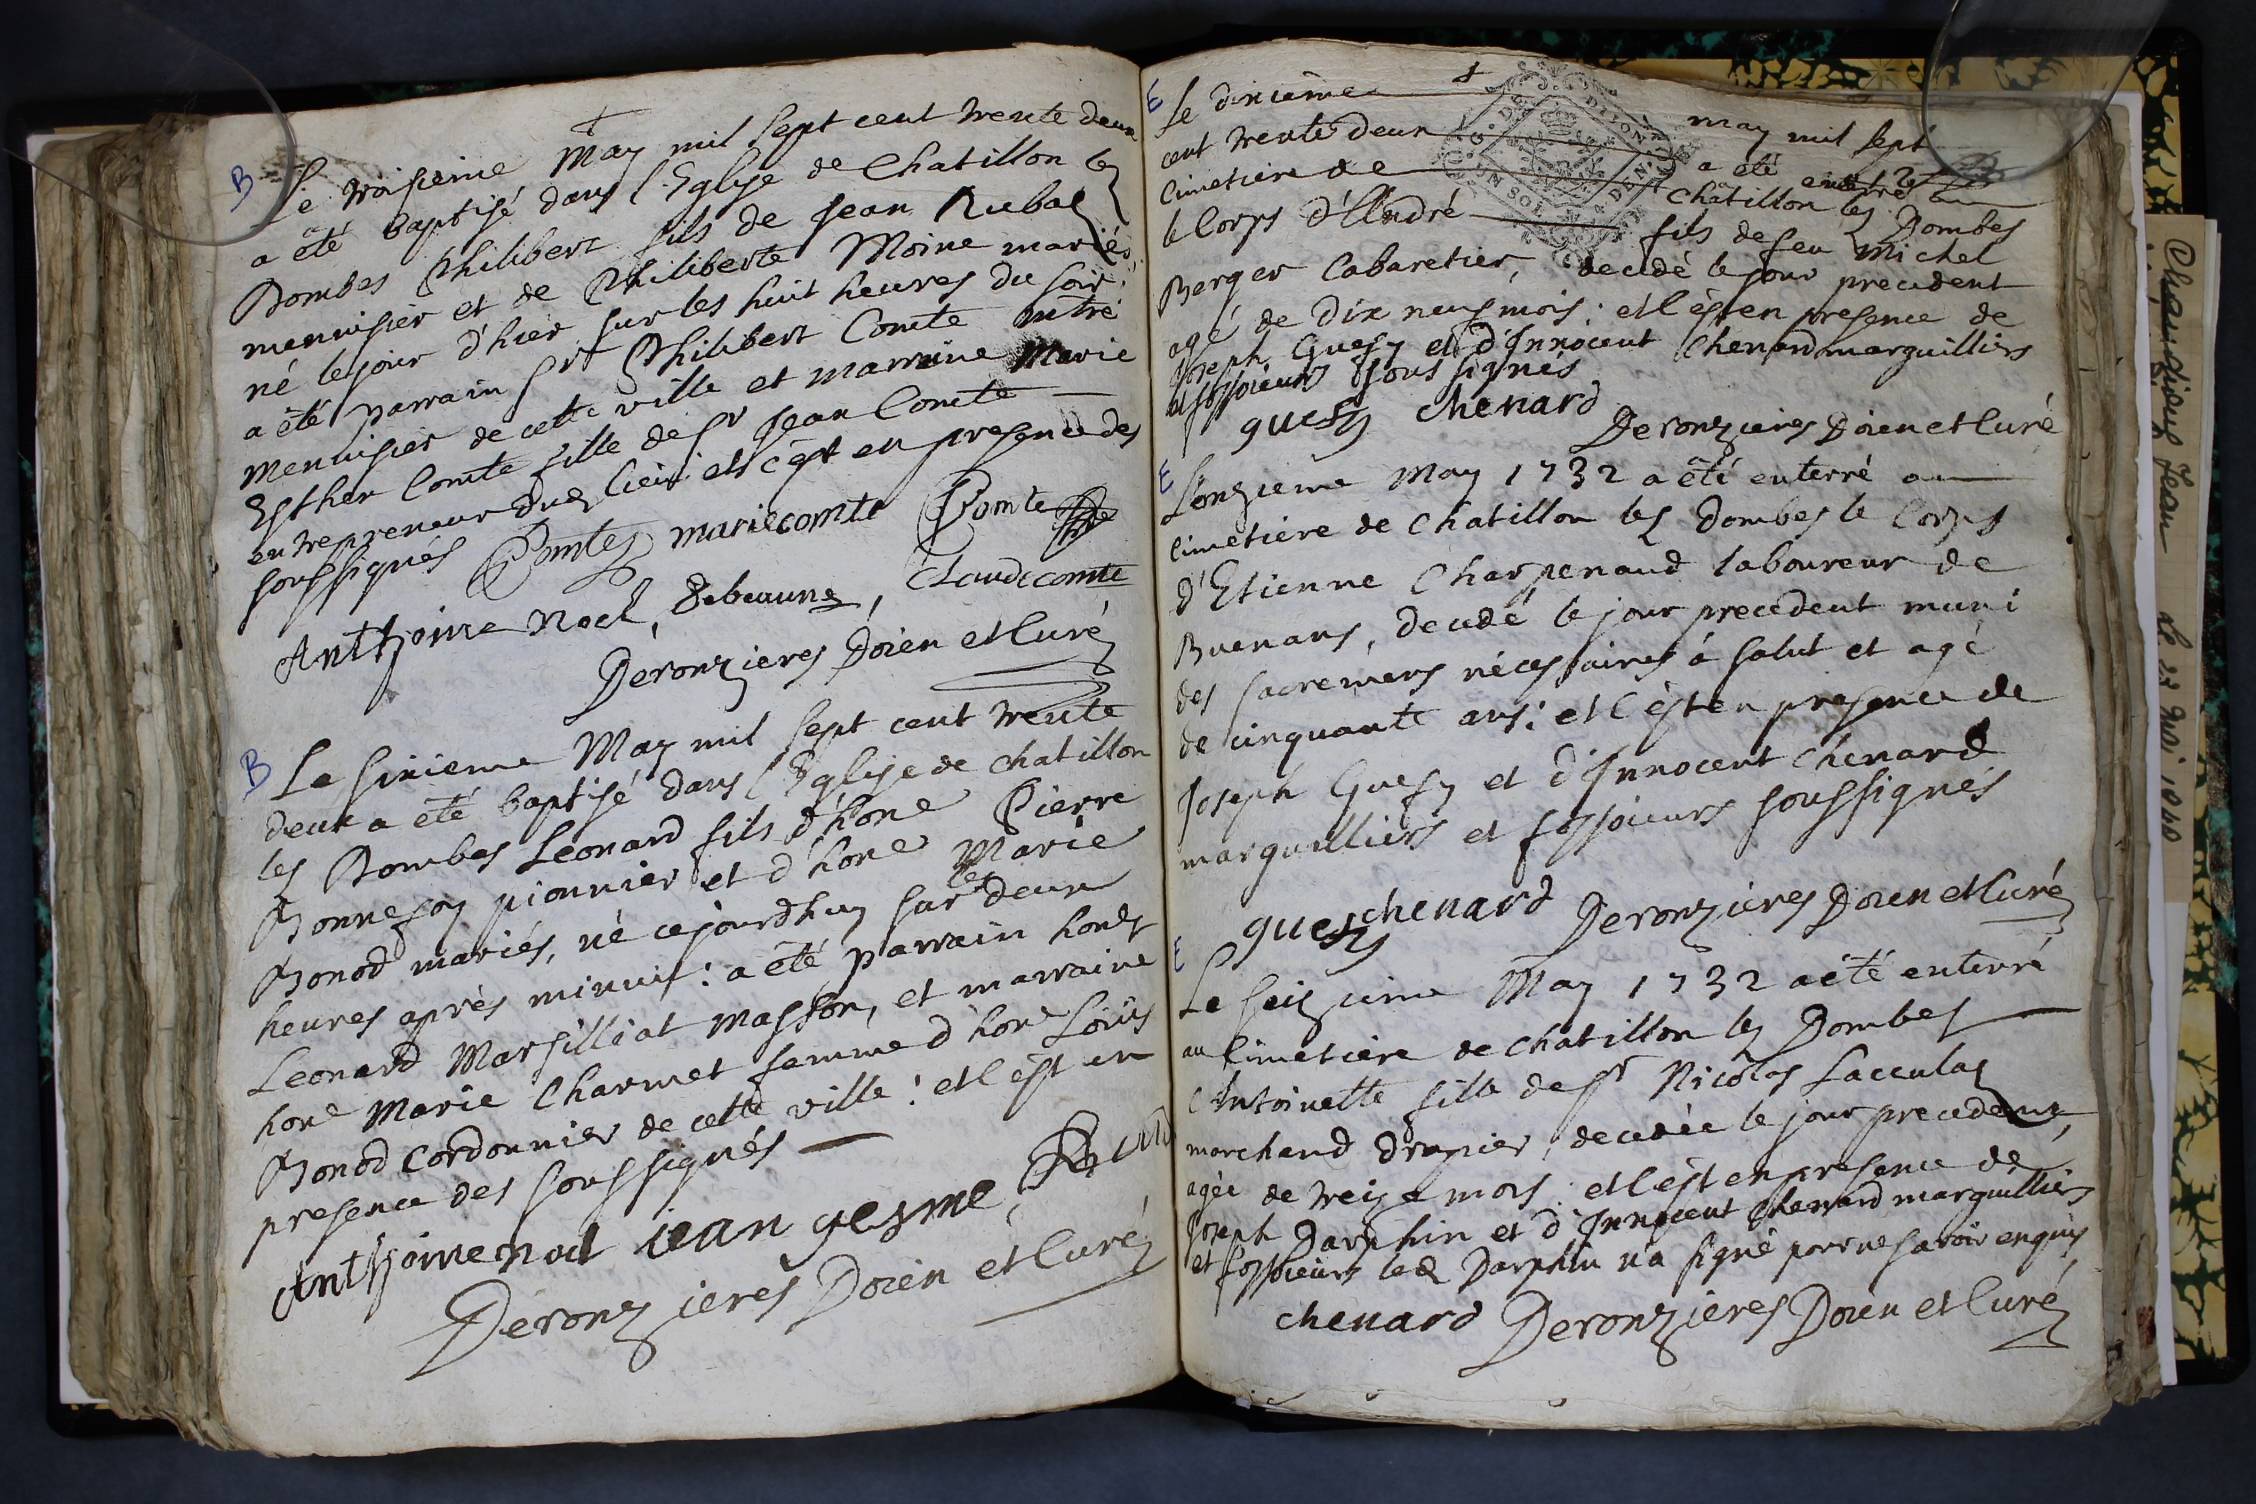 †
B Le troisieme May mil sept cent trente deux
a été baptisé dans l'Eglise de Chatillon les
Dombes Philibert fils de Jean Rubat
menuisier et de Philiberte Moine mariés,
né le jour d'hier sur les huit heures du soir:
a été parrain Sr Philibert Comte maitre
menuisier de cette ville et marraine Marie
Esther Comte fille de Sr Jean Comte
entrepreneur dud lieu: et c'est en presence des
soussignés Comte marie comte Comte
Anthoine Noel, Debeaune, Claude comte
Deronzieres Doien et Curé
B Le sixieme May mil sept cent trente
deux a été baptisé dans l'Eglise de chatillon
les Dombes Léonard fils d'hone Pierre
Bonnefoy pionnier et d'hone Marie
Bonod mariés, né cejourdhuy sur les deux
heures après minuit: a été parrain honet
Leonard Marsilliat masson, et marraine
hone Marie Charmet femme d'hone Loüis
Bonod Cordonnier de cette ville: et c'est en
presence des soussignés
Anthoine noel jean gesme,
Deronzieres Doien et Curé
†
E Le dixieme may mil sept
cent trente deux a été enterré au
Cimetiere de Châtillon les Dombes
le Corps d'André fils de feu Michel
Berger Cabaretier, decedé le jour precedent
agé de dix neuf mois: et c'est en presence de
Joseph Guesy et d'Innocent Chenard marguilliers
et fossoieurs soussignés
guesy chenard
Deronzieres Doien et Curé
E L'onzieme May 1732 a été enterré au
Cimetiere de Chatillon les Dombes le Corps
d'Etienne Charpenaud laboureur de
Buenans, decedé le jour precedent muni
des sacremens nécessaires à salut et agé
de cinquante ans: et c'est en presence de
Joseph Guesy et d'Innocent Chenard
marguilliers et fossoieurs soussignés
guesy chenard Deronzieres Doien et Curé
E Le seizieme May 1732 a été enterré
au Cimetiere de chatillon les Dombes
Antoinette fille de Sr Nicolas Laculas
marchand drapier, decedée le jour precedent,
agée de treize mois: et c'est en presence de
Joseph Darphin et d'Innocent Chenard marguilliers
et fossoieurs led Darphin n'a signé pour ne savoir enquis
chenard Deronzieres Doien et Curé
G. DE DIJON
UN SOL 4 DEN.
Jean Le 27 mai 1840